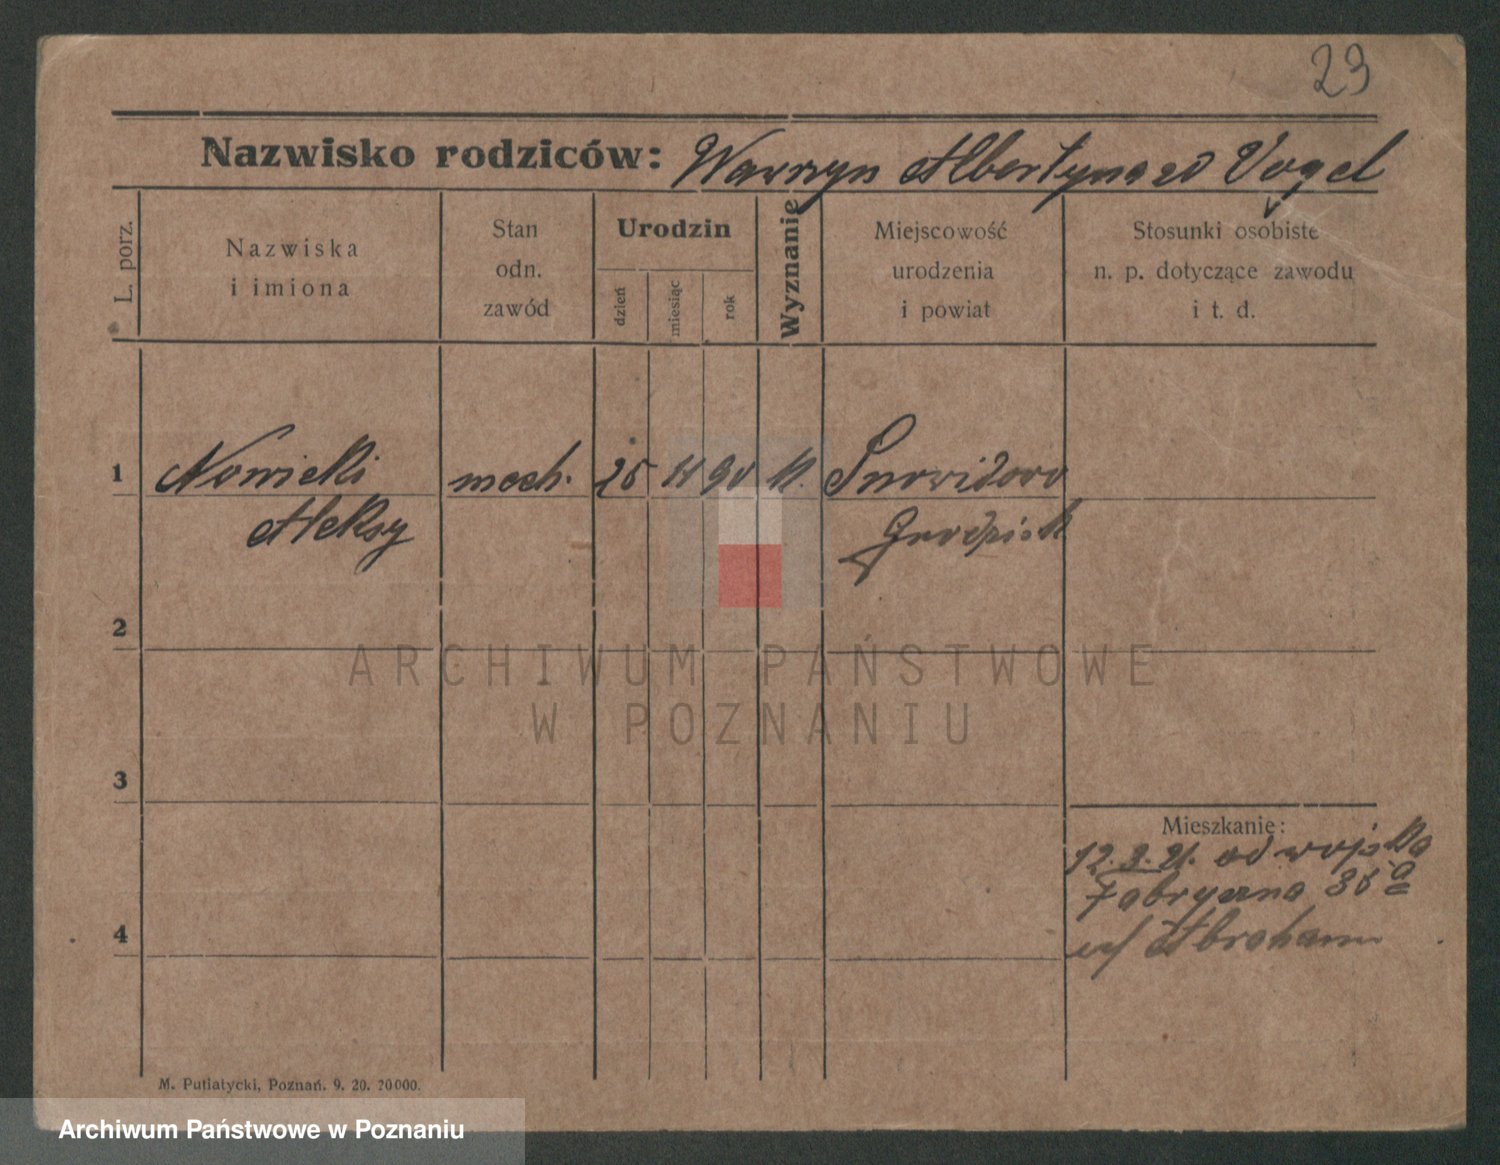 23
Nazwisko rodziców: Wawrzyn Albertyna zd Vogel
L. porz.
Nazwiska
i imiona
Stan
odn.
zawód
Urodzin
dzień
miesiąc
rok
Wyznanie
Miejscowość
urodzenia
i powiat
Stosunki osobiste
n. p. dotyczące zawodu
i t. d.
1 Nowicki mech. 25 90 k.
Aleksy Grodzisk
2
ARCHIWUM PAŃSTWOWE
W POZNANIU
3
Mieszkanie:
12.3.21. od wojska
Fabryczna 36a
Abraham
4
M. Putiatycki, Poznań. 9. 20. 20000.
Archiwum Państwowe w Poznaniu